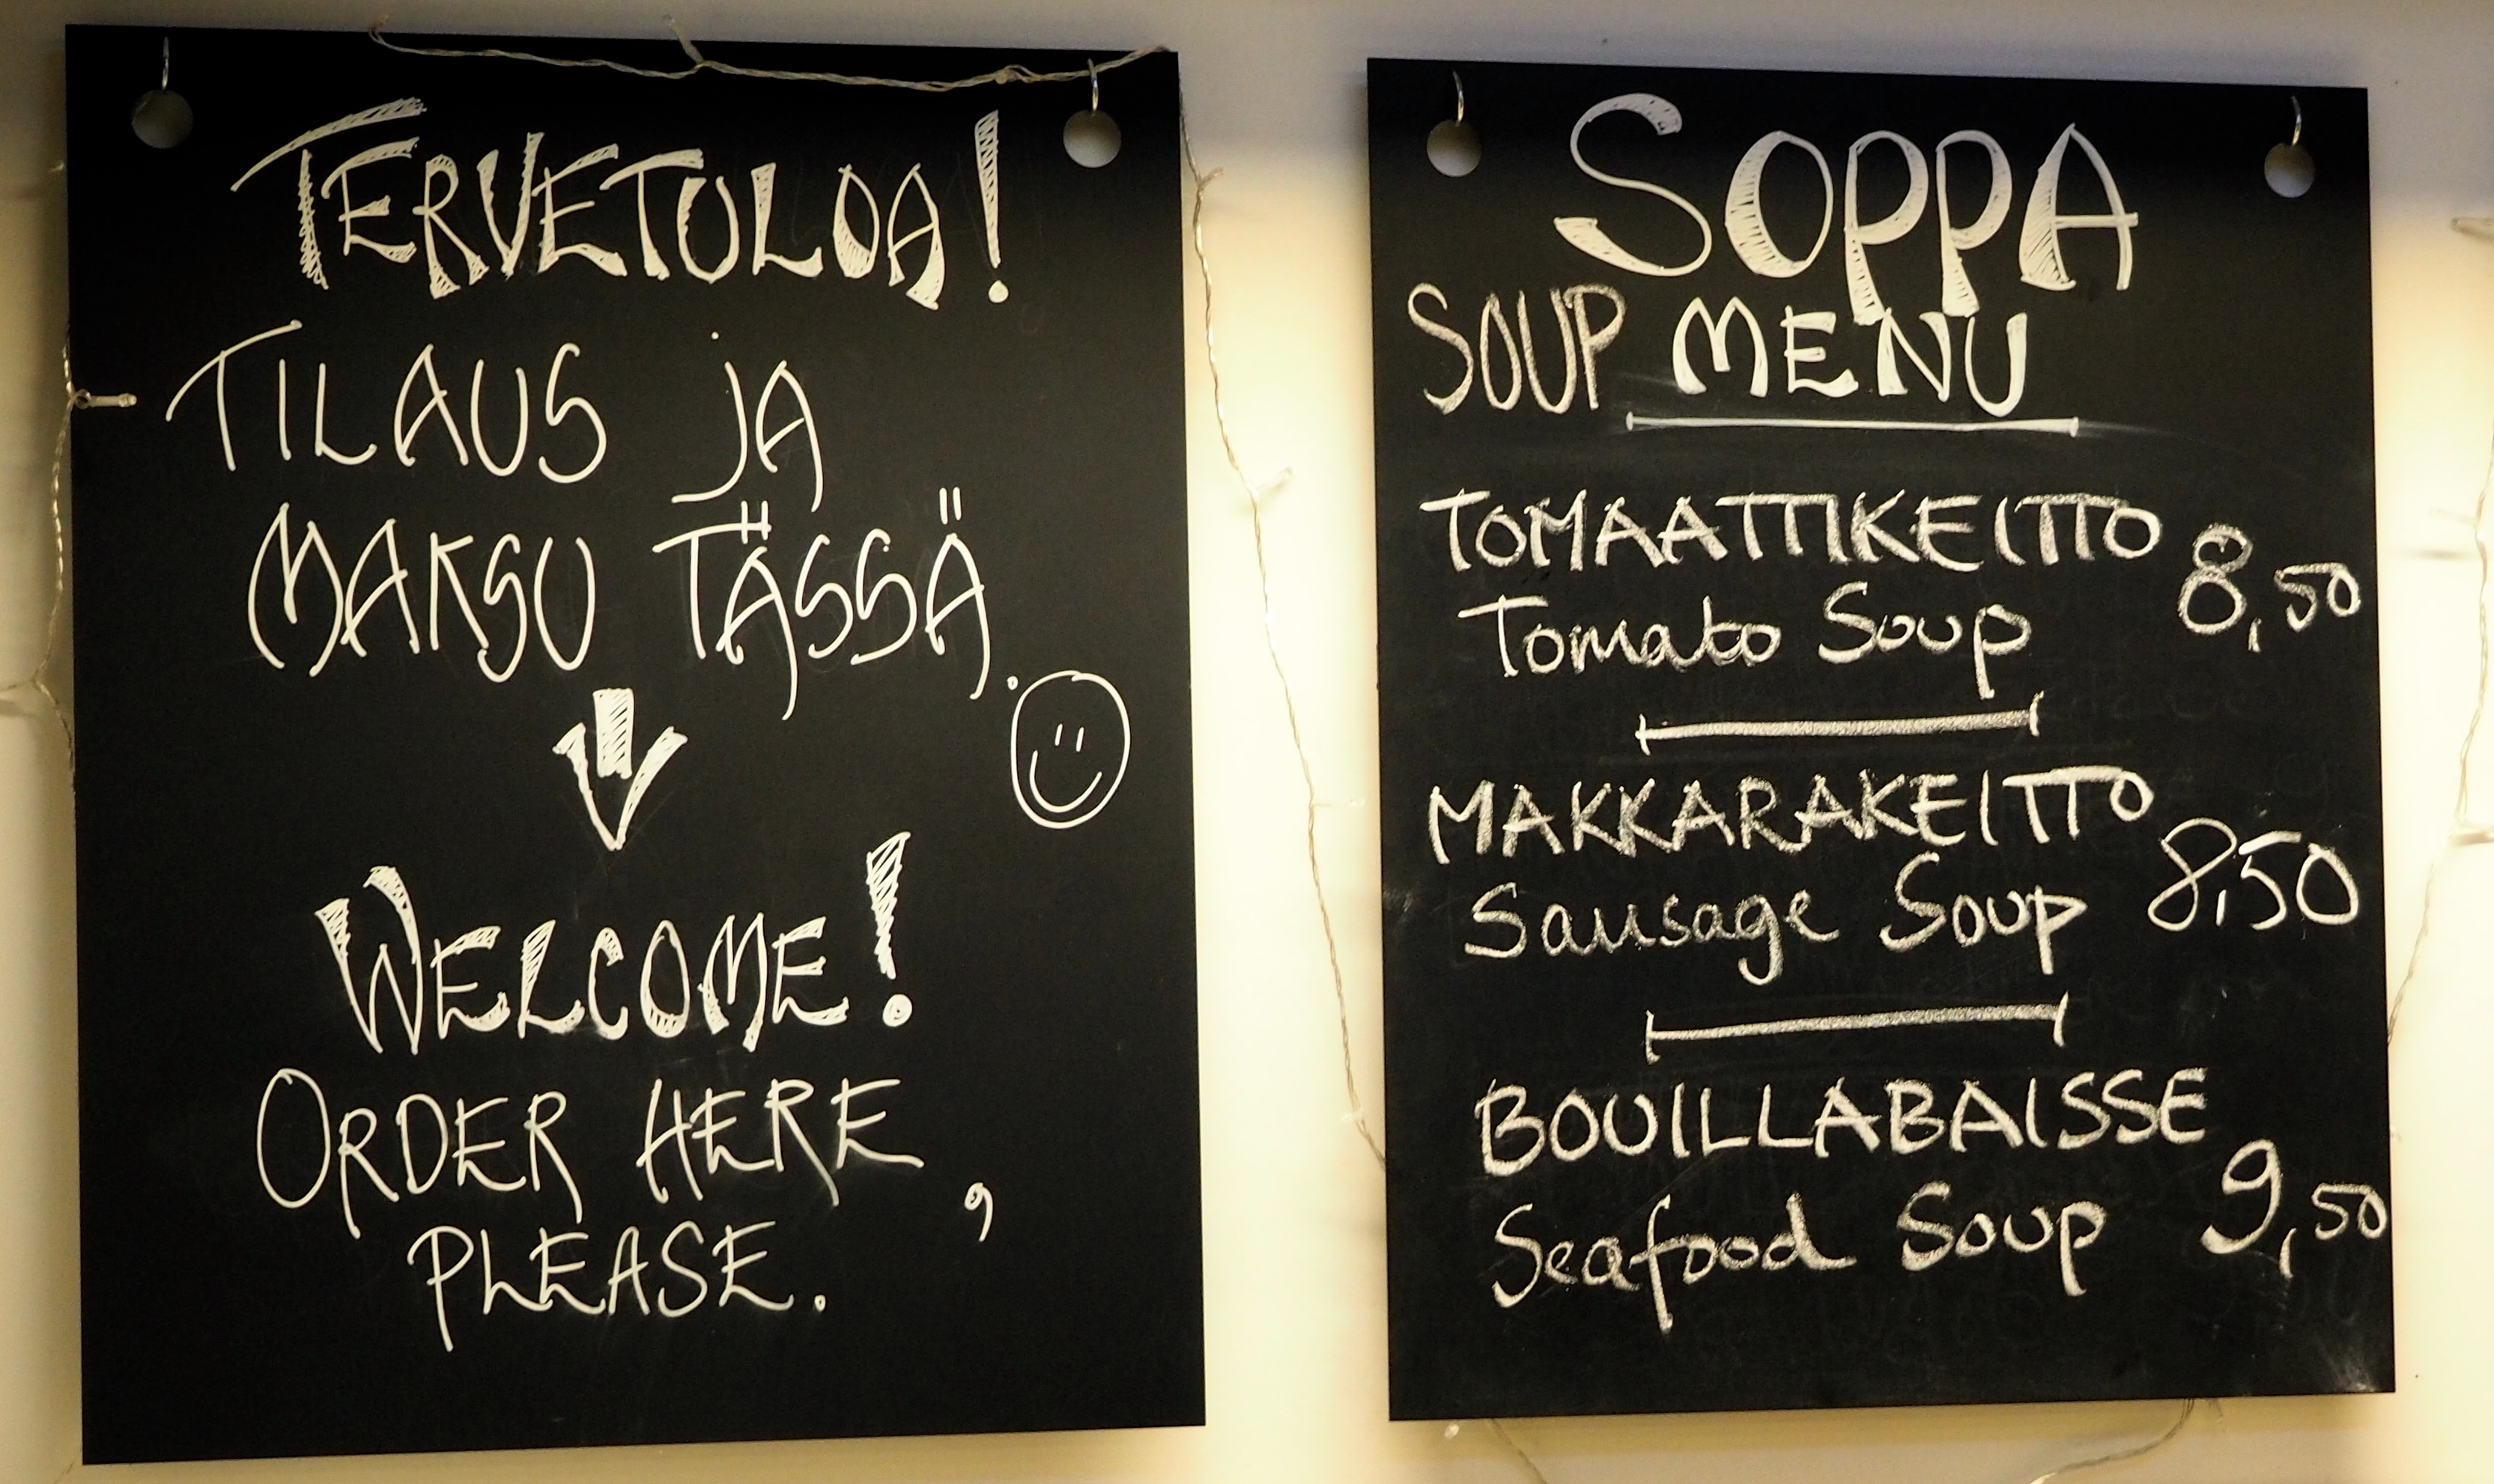 TERVETULOA!
TILAUS JA
MAKSU TÄSSÄ.
WELCOME!
ORDER HERE,
PLEASE.
SOPPA
SOUP MENU
TOMAATTIKEITTO 8,50
Tomato Soup
MAKKARAKEITTO 8,50
Sausage Soup
BOUILLABAISSE
Seafood Soup 9,50